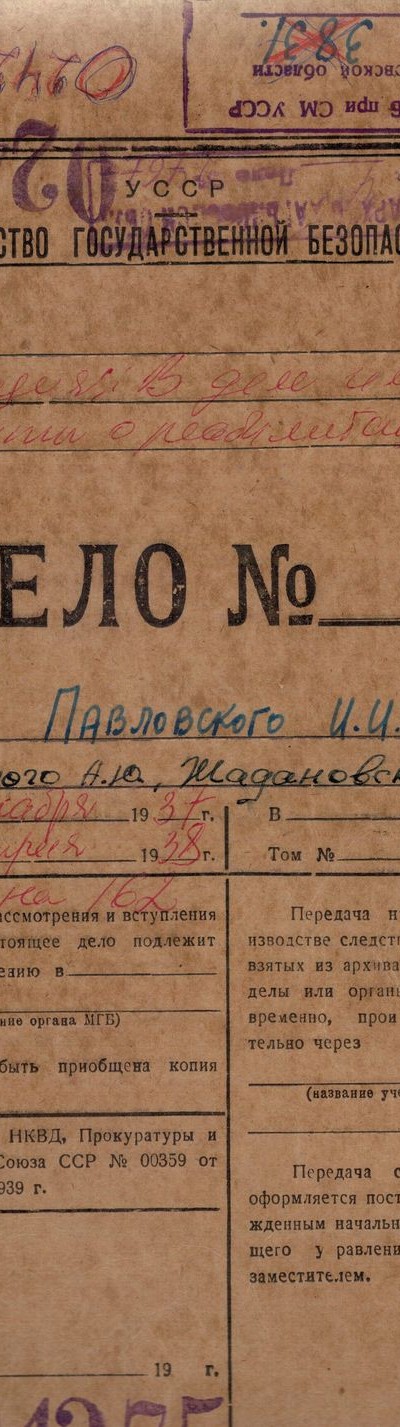 3831.
овской области
Б при СМ УССР
УССР
СТВО ГОСУДАРСТВЕННОЙ БЕЗОПАС
В деле
о реабилитац
ЕЛО №
Павловского И.И.
ого А.Ю., Жадановск
кабря 1937г.
преля 1938г.
на 162
ассмотрения и вступления
тоящее дело подлежит
ению в
ние органа МГБ)
быть приобщена копия
НКВД, Прокуратуры и
Союза ССР № 00359 от
939 г.
19 г.
В
Том №
Передача н
изводстве следст
взятых из архива
делы или орган
временно, прои
тельно через
(название уч
Передача с
оформляется пост
жденным начальн
щего управлени
заместителем.